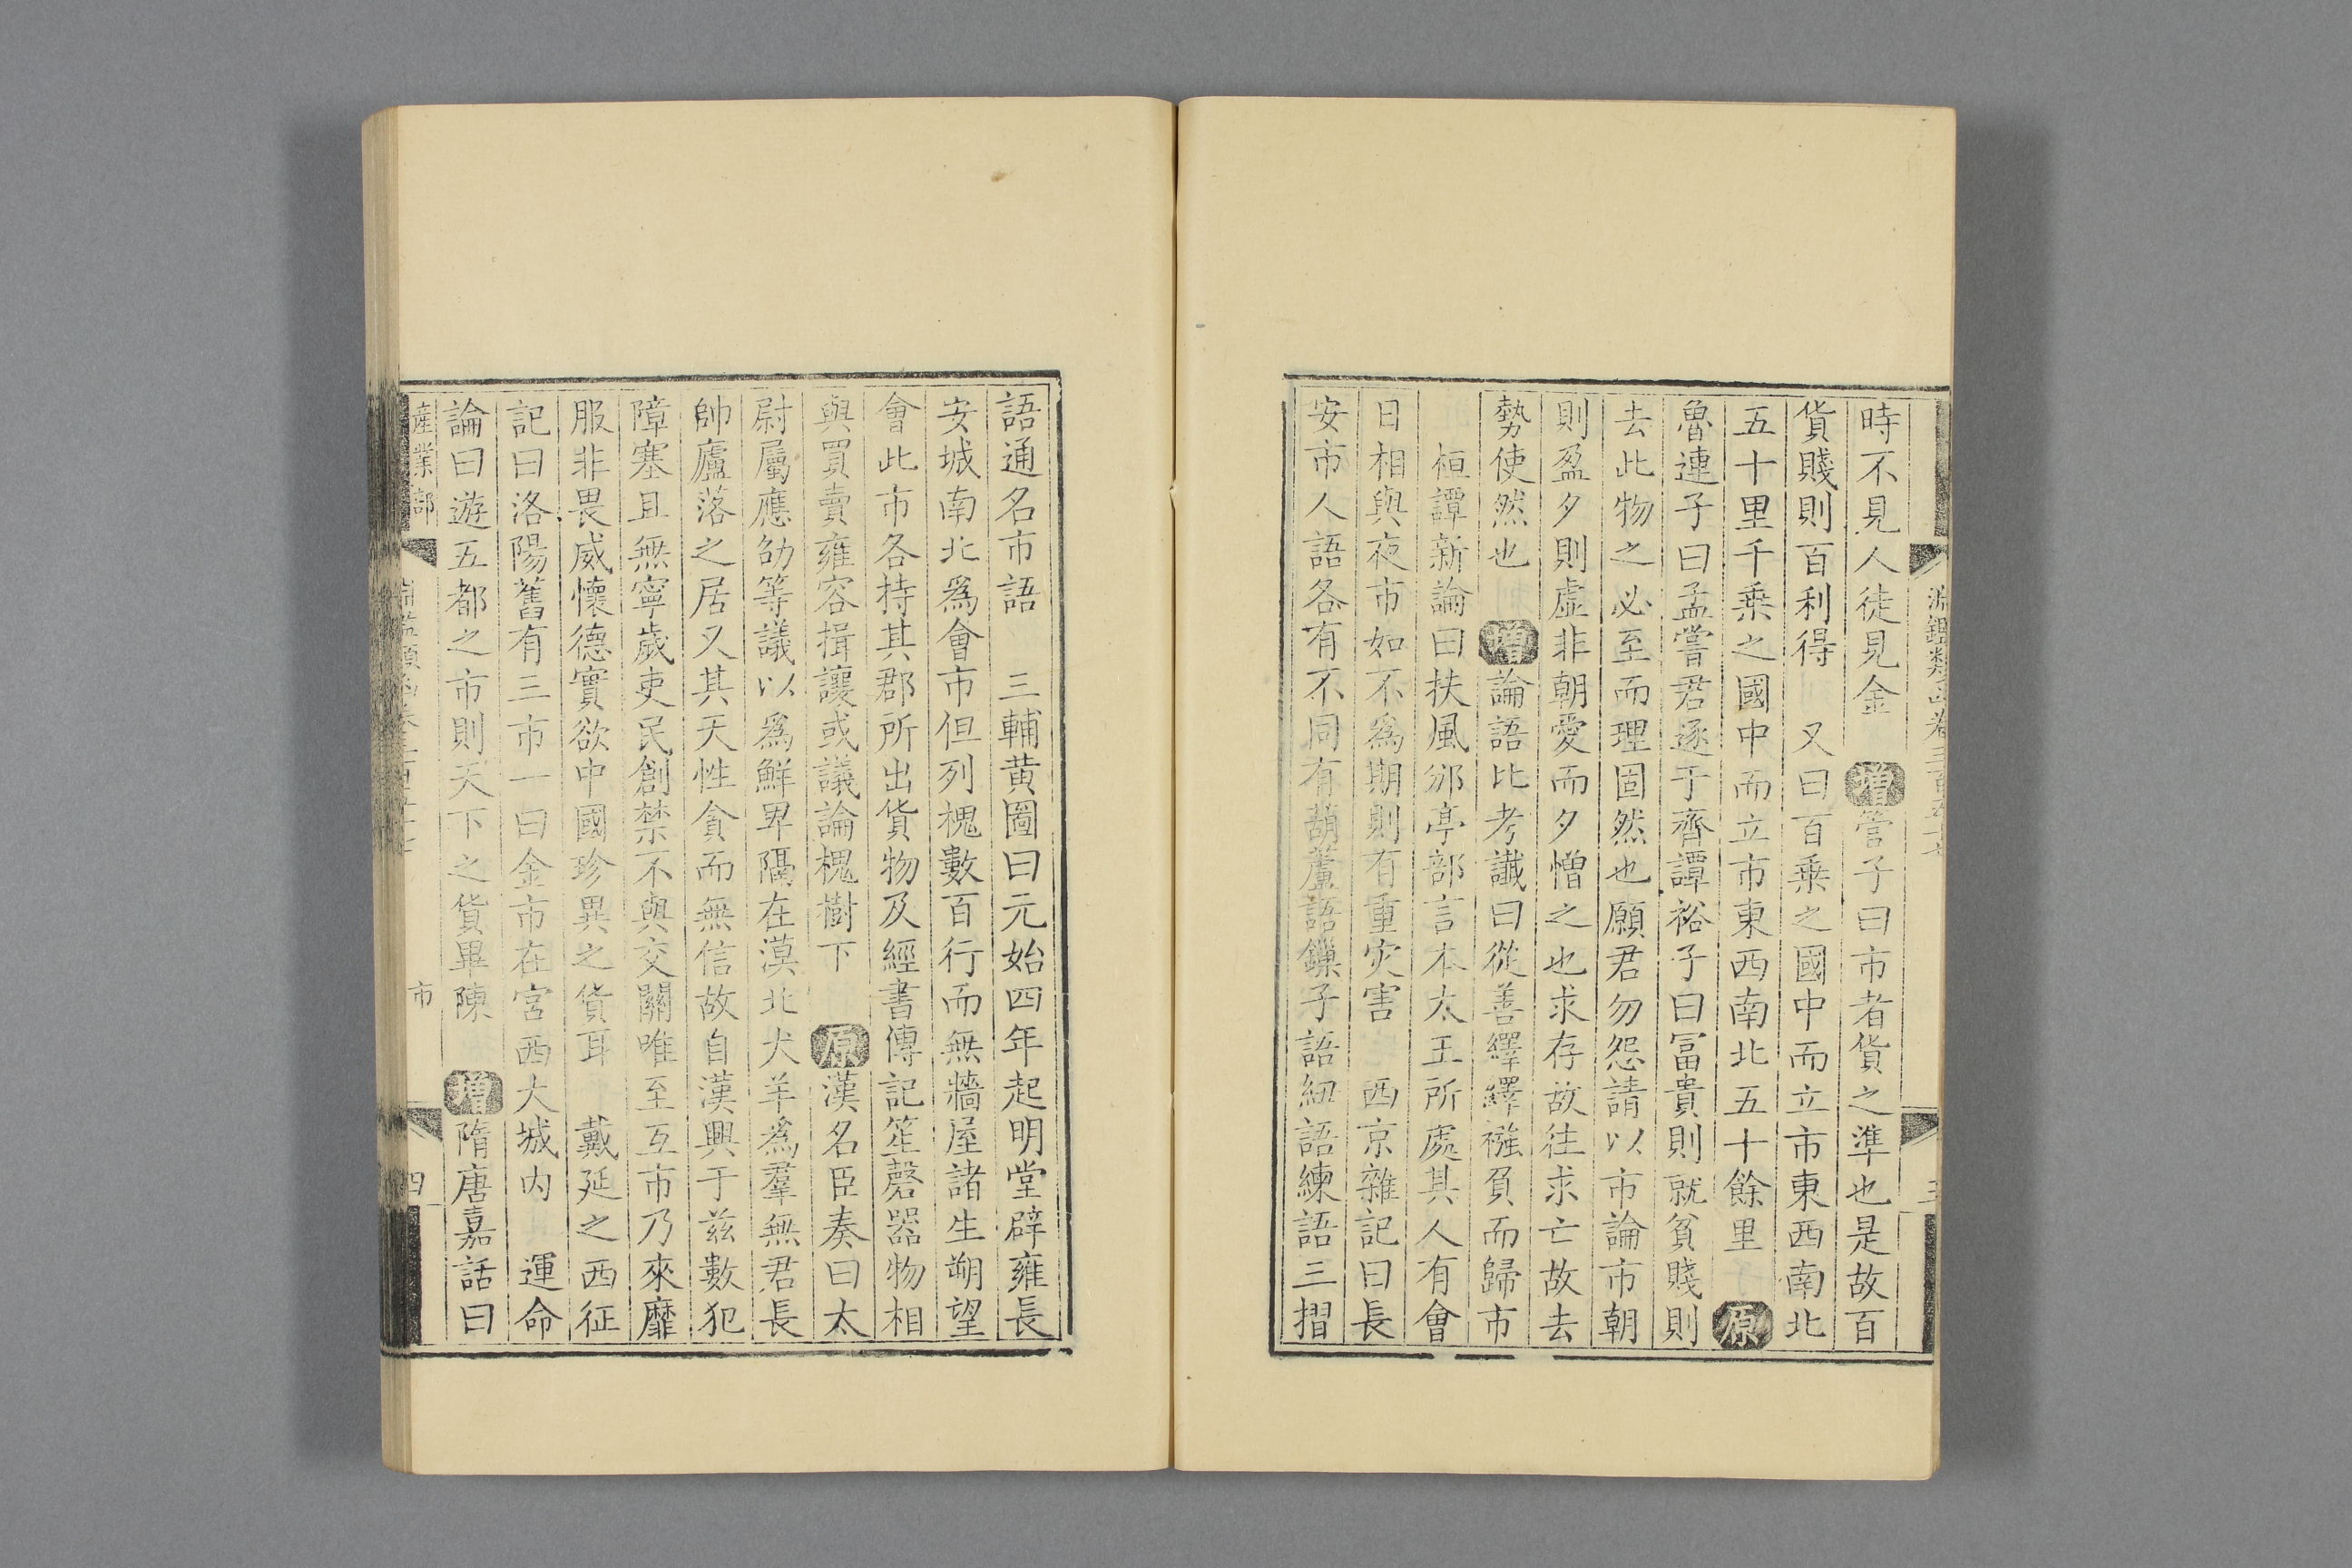 淵鑑類函卷三百五十七
三
時不見人徒見金 增管子曰市者貨之準也是故百
貨賤則百利得 又曰百乗之國中而立市東西南北
五十里千乗之國中而立市東西南北五十餘里 原
魯連子曰孟嘗君逐于齊譚裕子曰富貴則就貧賤則
去此物之必至而理固然也願君勿怨請以市論市朝
則盈夕則虛非朝愛而夕憎之也求存故往求亡故去
勢使然也 增論語比考讖曰從善繹繹襁負而歸市
桓譚新論曰扶風邠亭部言本太王所處其人有會
日相與夜市如不為期則有重灾害 西京雜記曰長
安市人語各有不同有葫蘆語鏁子語紐語練語三摺
語通名市語 三輔黃圖曰元始四年起明堂辟雍長
安城南北為會市但列槐數百行而無牆屋諸生朔望
會此市各持其郡所出貨物及經書傳記笙磬器物相
與買賣雍容揖讓或議論槐樹下 原漢名臣奏曰太
尉屬應劭等議以為鮮卑隔在漠北犬羊為羣無君長
帥廬落之居又其天性貪而無信故自漢興于茲數犯
障塞且無寧歲吏民創禁不與交關唯至互市乃來靡
服非畏威懷德實欲中國珍異之貨耳 戴延之西征
記曰洛陽舊有三市一曰金市在宮西大城內 運命
論曰遊五都之市則天下之貨畢陳 增隋唐嘉話曰
產業部
市
四